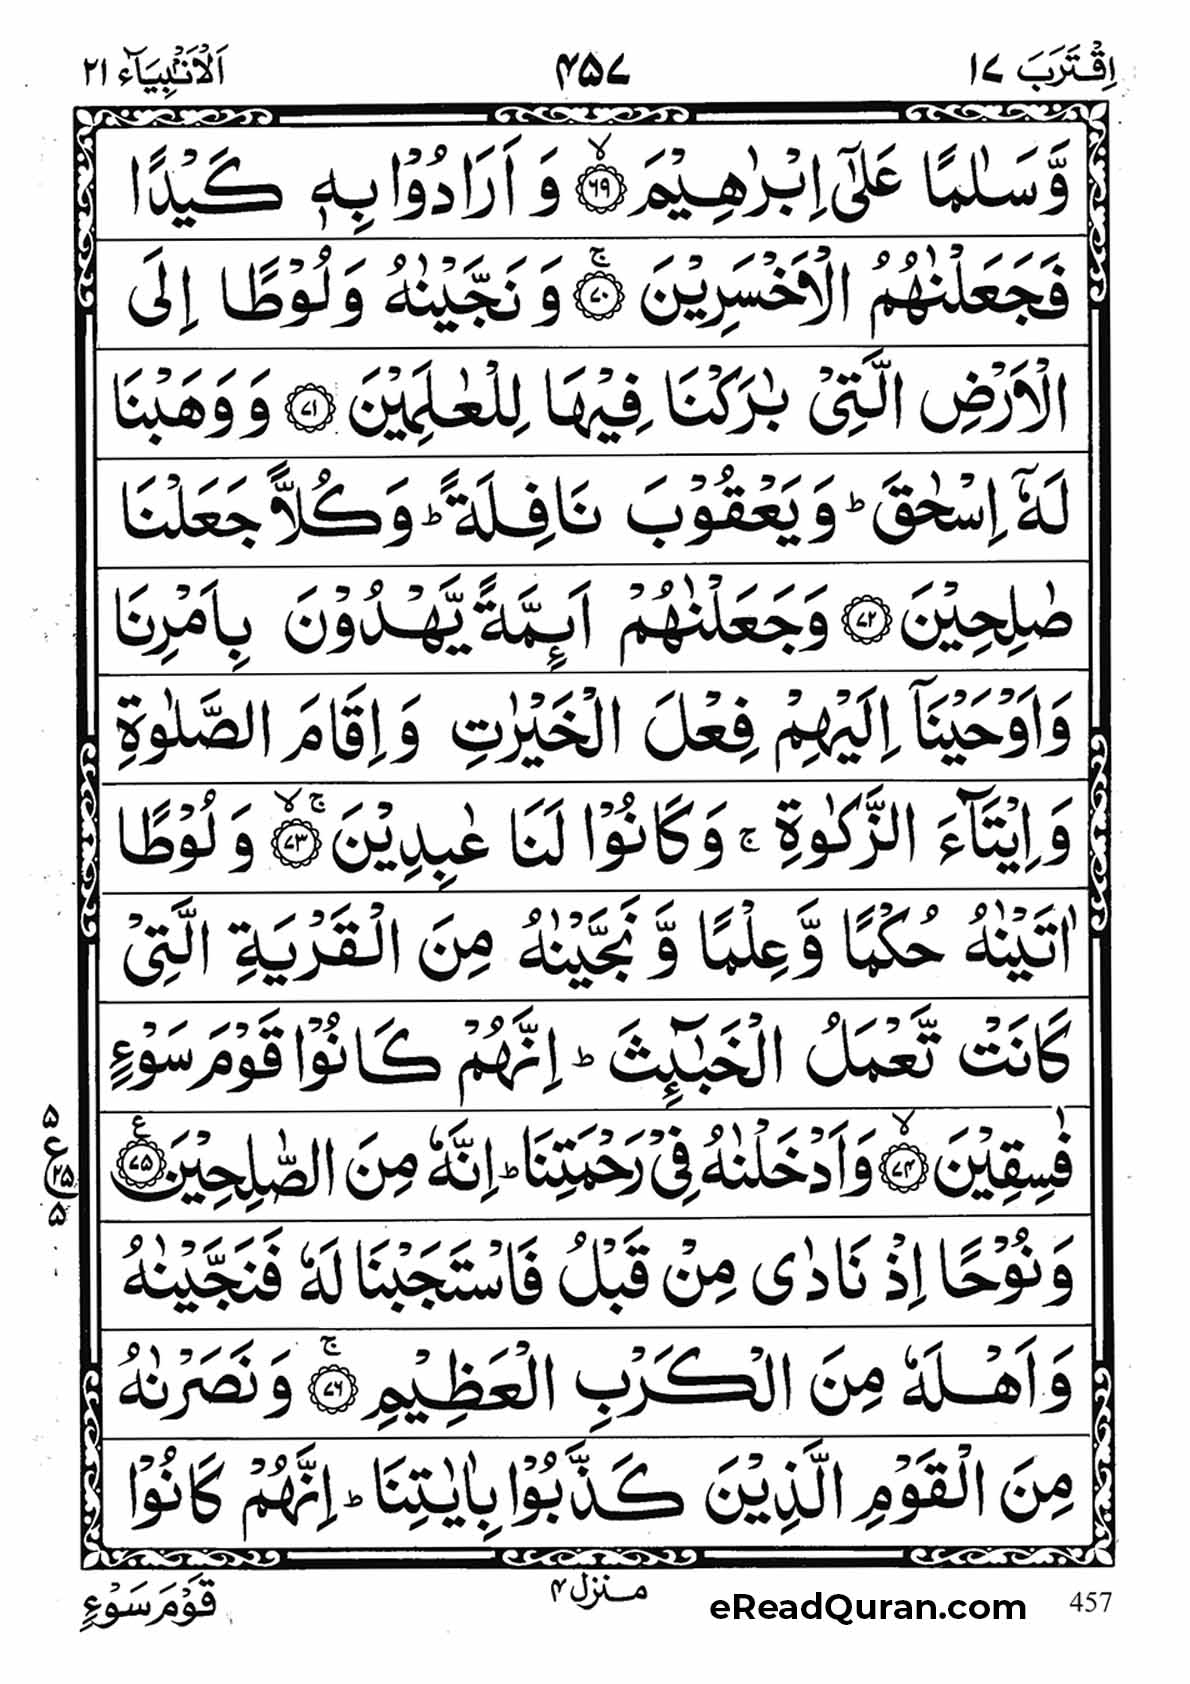 اِقْتَرَبَ ١٧ ۴۵۷ اَلْاَنْۢبِيَآء ٢١
وَّسَلٰمًا عَلٰٓى اِبْرٰهِيْمَ ۙ‏﴿۶۹﴾ وَ اَرَادُوْا بِهٖ كَيْدًا
فَجَعَلْنٰهُمُ الْاَخْسَرِيْنَ ۚ‏﴿۷۰﴾ وَ نَجَّيْنٰهُ وَ لُوْطًا اِلَى
الْاَرْضِ الَّتِىْ بٰرَكْنَا فِيْهَا لِلْعٰلَمِيْنَ ﴿۷۱﴾ وَ وَهَبْنَا
لَهٗۤ اِسْحٰقَ ؕ وَ يَعْقُوْبَ نَافِلَةً ؕ وَ كُلًّا جَعَلْنَا
صٰلِحِيْنَ ﴿۷۲﴾ وَجَعَلْنٰهُمْ اَىِٕمَّةً يَّهْدُوْنَ بِاَمْرِنَا
وَاَوْحَيْنَاۤ اِلَيْهِمْ فِعْلَ الْخَيْرٰتِ وَ اِقَامَ الصَّلٰوةِ
وَ اِيْتَآءَ الزَّكٰوةِ ۚ وَ كَانُوْا لَنَا عٰبِدِيْنَ ۚۙ‏﴿۷۳﴾ وَ لُوْطًا
اٰتَيْنٰهُ حُكْمًا وَّ عِلْمًا وَّ نَجَّيْنٰهُ مِنَ الْقَرْيَةِ الَّتِىْ
كَانَتْ تَّعْمَلُ الْخَبٰٓىِٕثَ ؕ اِنَّهُمْ كَانُوْا قَوْمَ سَوْءٍ
فٰسِقِيْنَ ۙ‏﴿۷۴﴾ وَاَدْخَلْنٰهُ فِىْ رَحْمَتِنَا ؕ اِنَّهٗ مِنَ الصّٰلِحِيْنَ ﴿۷۵﴾ ع
۵ ع ۲۵ ۵
وَ نُوْحًا اِذْ نَادٰى مِنْ قَبْلُ فَاسْتَجَبْنَا لَهٗ فَنَجَّيْنٰهُ
وَ اَهْلَهٗ مِنَ الْكَرْبِ الْعَظِيْمِ ۚ‏﴿۷۶﴾ وَ نَصَرْنٰهُ
مِنَ الْقَوْمِ الَّذِيْنَ كَذَّبُوْا بِاٰيٰتِنَا ؕ اِنَّهُمْ كَانُوْا
قَوْمَ سَوْءٍ منزل ۴ eReadQuran.com 457